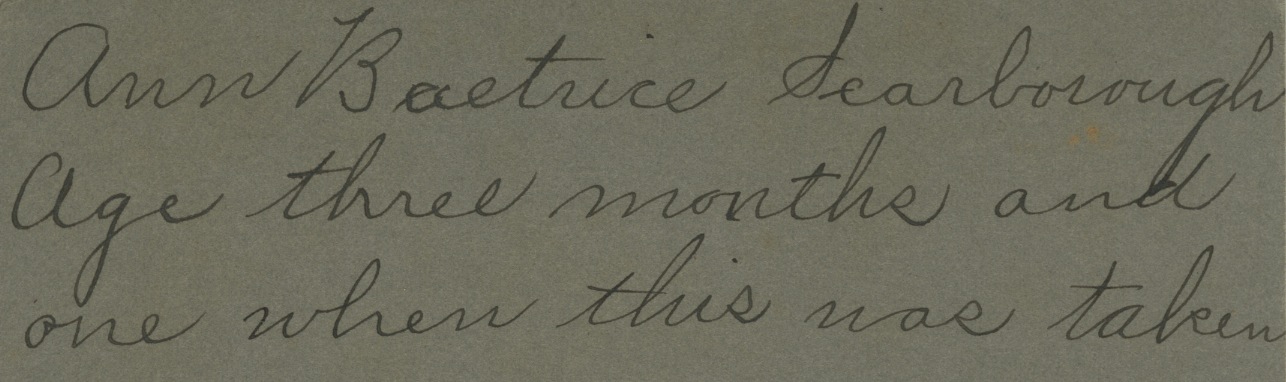 Ann Baetrice Scarborough
Age three months and
one when this was taken